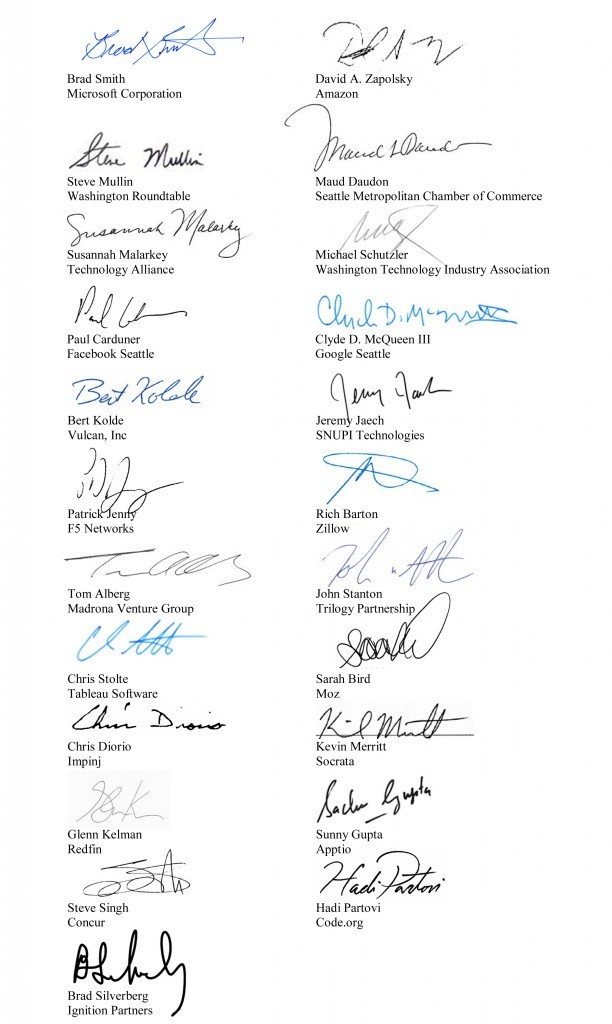 Brad Smith
Microsoft Corporation
David A. Zapolsky
Amazon
Steve Mullin
Steve Mullin
Washington Roundtable
Maud Daudon
Maud Daudon
Seattle Metropolitan Chamber of Commerce
Susannah Malarkey
Susannah Malarkey
Technology Alliance
Michael Schutzler
Washington Technology Industry Association
Paul Carduner
Facebook Seattle
Clyde D. McQueen
Clyde D. McQueen III
Google Seattle
Bert Kolde
Bert Kolde
Vulcan, Inc
Jeremy Jaech
SNUPI Technologies
Patrick Jenny
F5 Networks
Rich Barton
Zillow
Tom Alberg
Madrona Venture Group
John Stanton
Trilogy Partnership
Chris Stolte
Tableau Software
Sarah Bird
Moz
Chris Diorio
Chris Diorio
Impinj
Kevin Merritt
Socrata
Glenn Kelman
Redfin
Sunny Gupta
Apptio
Steve Singh
Concur
Hadi Partovi
Hadi Partovi
Code.org
Brad Silverberg
Ignition Partners